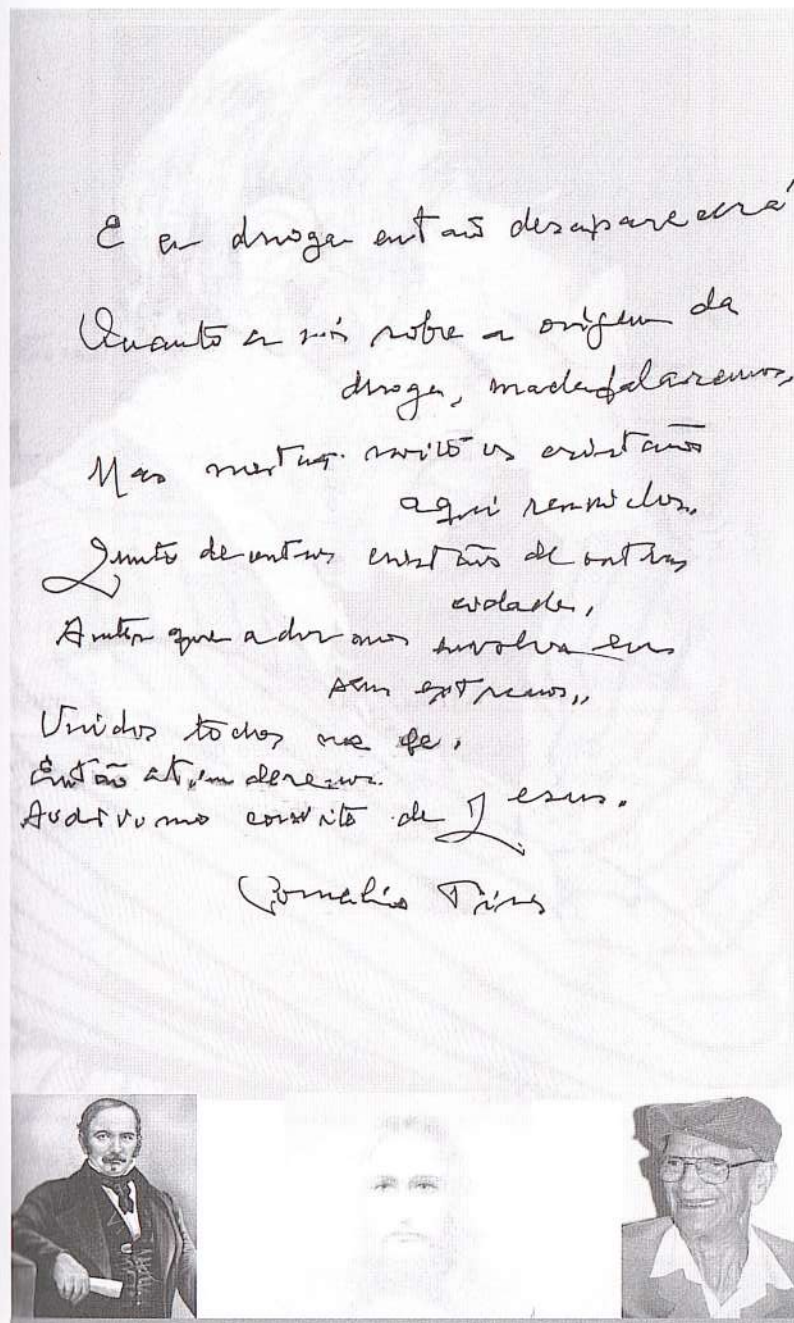 E a droga então desaparecerá
Quanto a nós sobre a origem da
droga, nada falaremos,
Mas nesta noite os cristãos
aqui reunidos,
Junto de outros cristãos de outras
cidades,
Antes que a dor nos envolva em
seus extremos,,
Unidos todos na fé,
Então atenderemos
Ao divino convite de Jesus.
Cornélio Pires